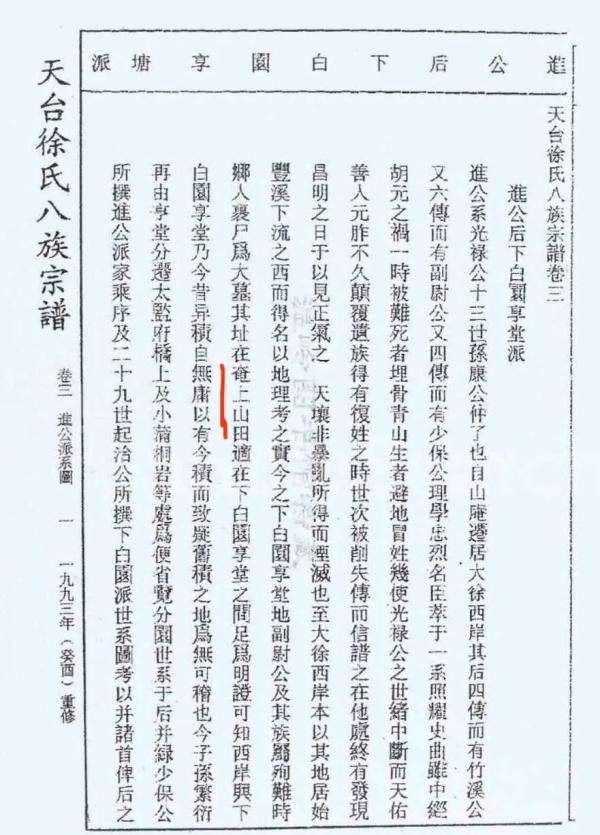 進公后下白園享塘派
天台徐氏八族宗譜卷三
進公后下白園享堂派
進公系光禄公十三世孫康公仲子也自山庵遷居大徐西岸其后四傳而有竹溪公
又六傳而有副尉公又四傳而有少保公理學忠烈名臣萃于一系照耀史曲雖中經
胡元之禍一時被難死者埋骨青山生者避地冒姓幾使光禄公之世緒中斷而天佑
善人元胙不久顛覆遺族得有復姓之時世次被削失傳而信譜之在他處終有發現
昌明之日于以見正氣之 天壤非暴亂所得而湮滅也至大徐西岸本以其地居始
豐溪下流之西而得名以地理考之實今之下白園享堂地副尉公及其族屬殉難時
鄉人裹尸爲大墓其址在奄上山田適在下白園享堂之間足爲明證可知西岸與下
白園享堂乃今昔异積自無庸以有今積而致疑舊積之地爲無可稽也今子孫繁衍
再由享堂分遷太監府橋上及小蒲桐岩等處爲便省覽分園世系于后并録少保公
所撰進公派家乘序及二十九世起治公所撰下白園派世系圖考以并諸首俾后之
天台徐氏八族宗譜
卷三 進公派系圖 一 一九九三年（癸酉）重修